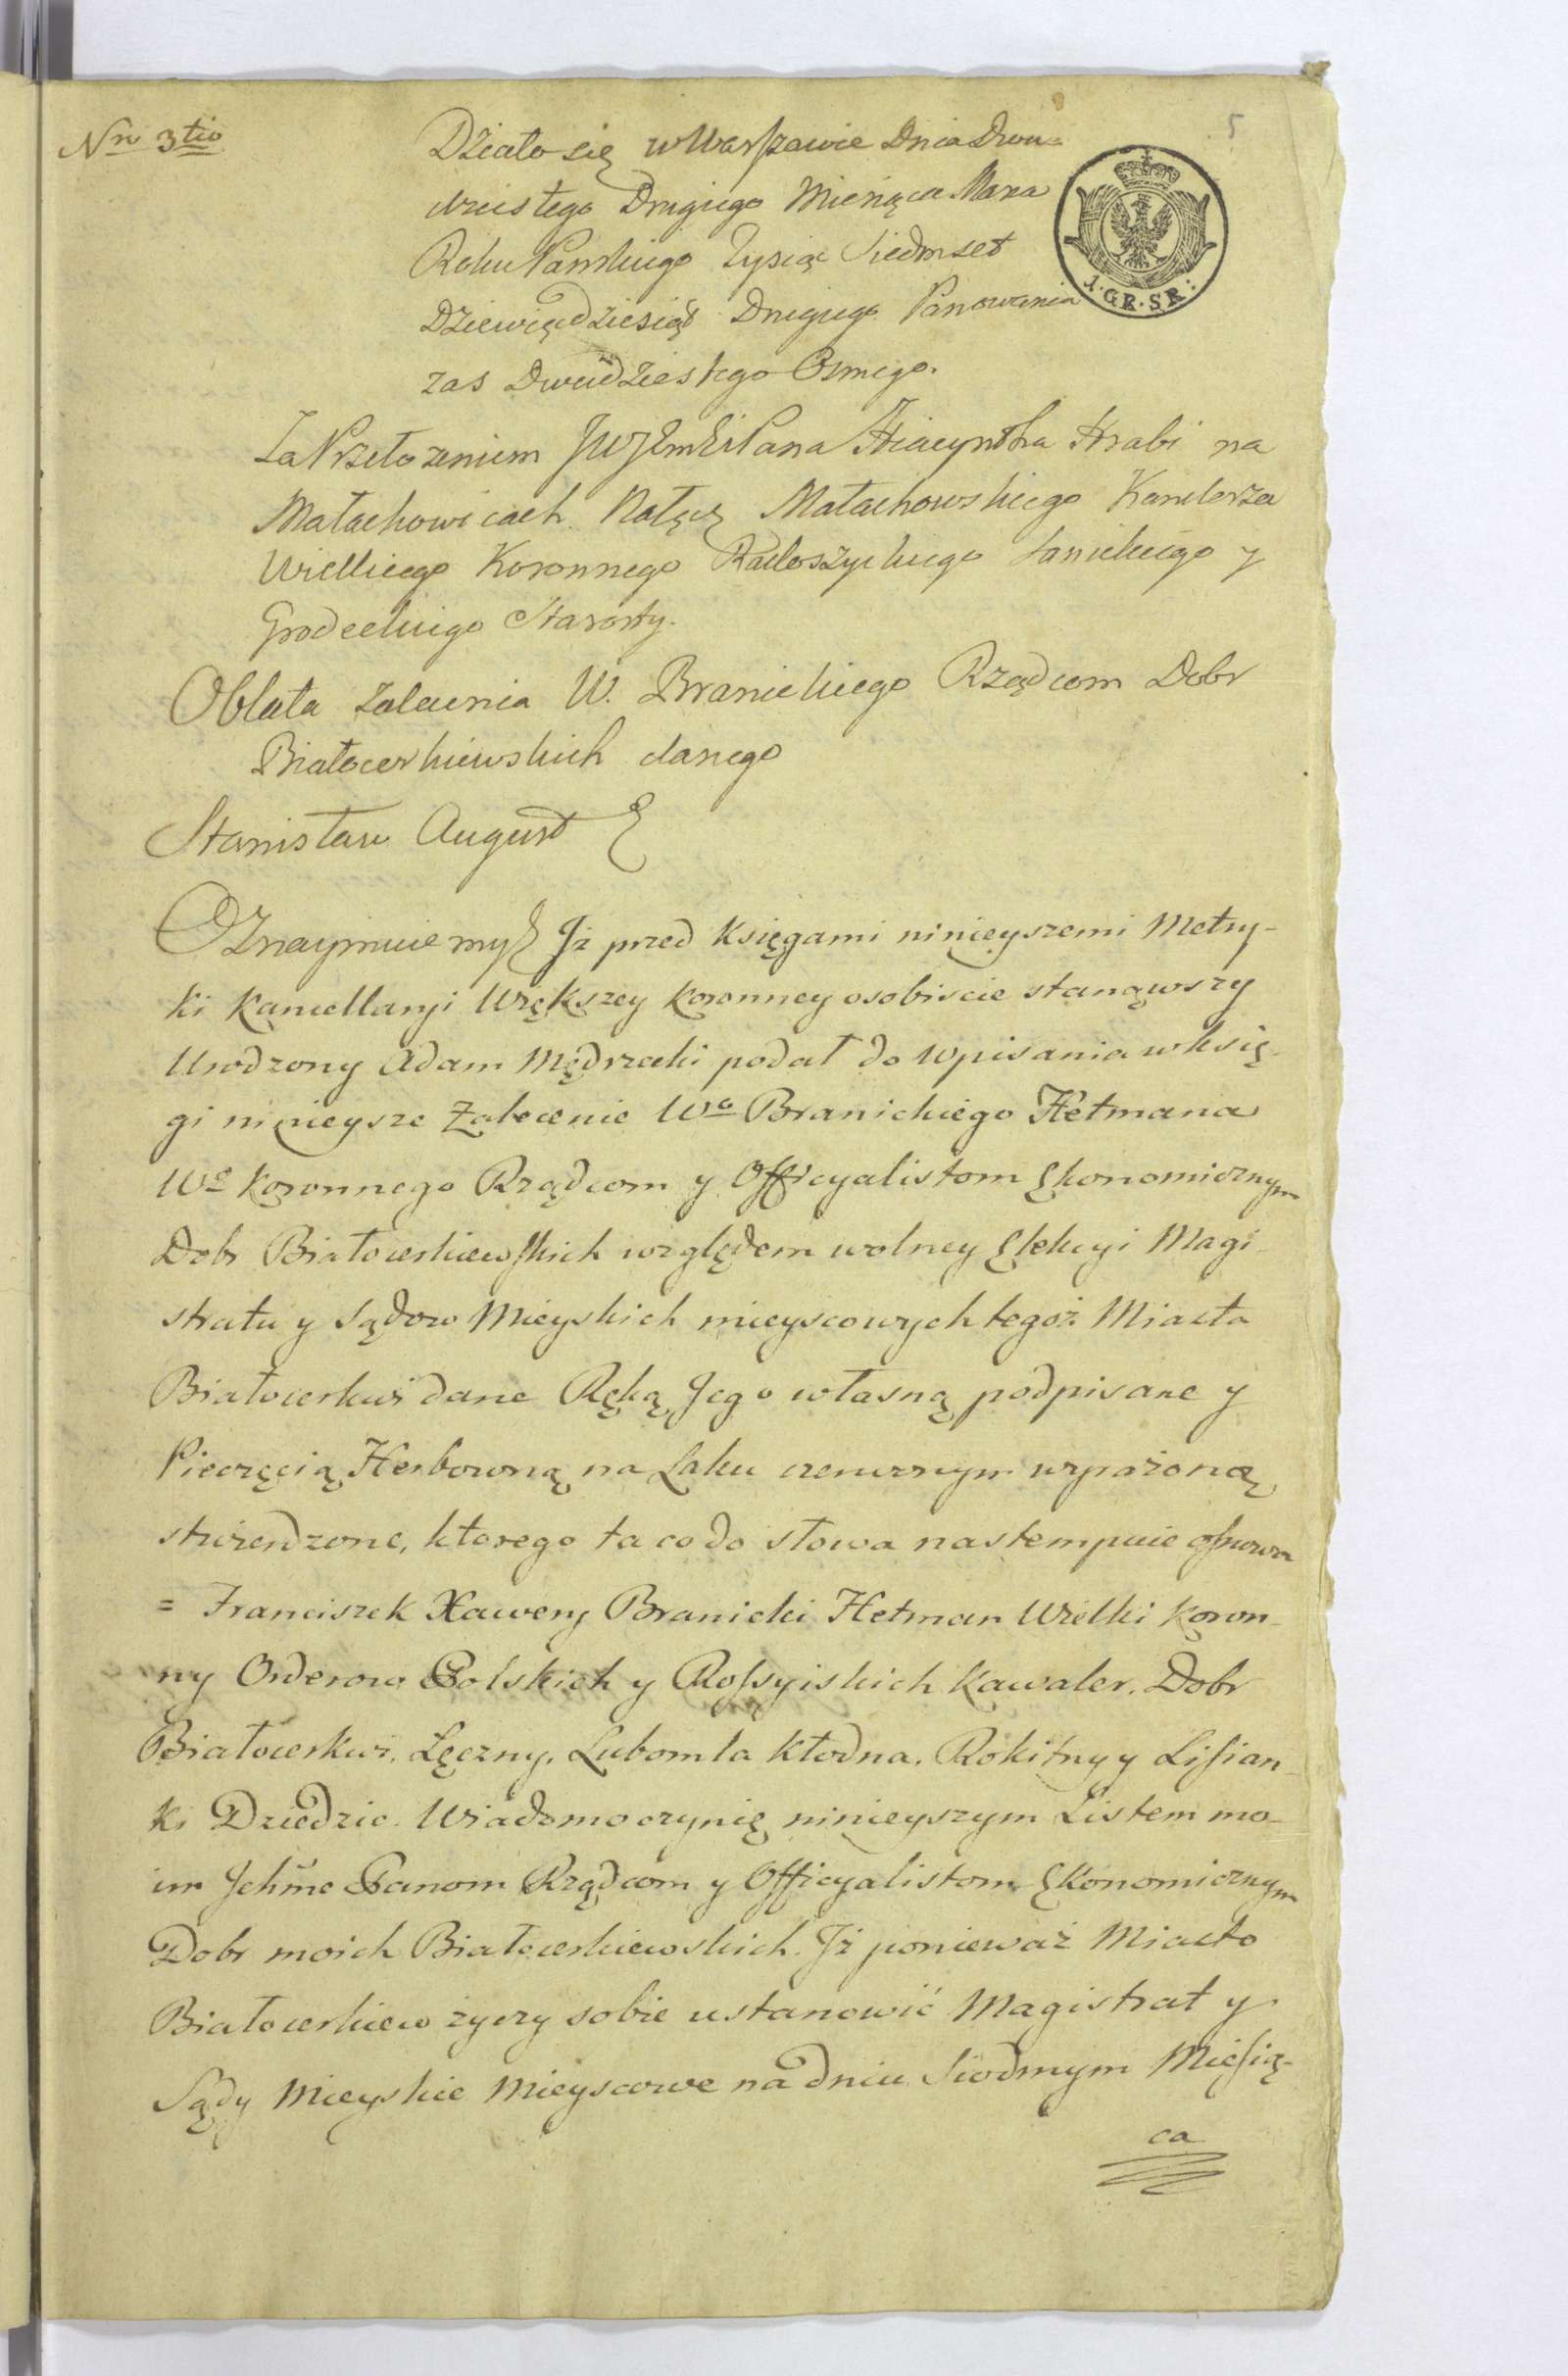 Nro 3tio
5
Działo się w Warszawie Dnia Dwu=
dziestego Drugiego Miesiąca Maia
Roku Pańskiego Tysiąc Siedmset
Dziewiędziesiąt Drugiego Panowania
zas Dwudziestego Osmego.
1. GR. SR.
Za Przełozeniem JW JEmSi Pana Hiacyntha Hrabi na
Małachowicach Nałęcz Małachowskiego Kanclerza
Wielkiego Koronnego Radoszyckiego Sanickiego y
Grodeckiego Starosty.
Oblata Zalecenia W. Branickiego Rządcom Dobr
Białocerkiewskich danego
Stanisław August
Oznaymuiemy Jż przed Księgami ninieyszemi Metry-
ki Kancellaryi Większey Koronney osobiscie stanąwszy
Urodzony Adam Mędrzecki podał do wpisania w księ-
gi ninieysze Zalecenie Wo Branickiego Hetmana
Wo Koronnego Rządcom y Officyalistom Ekonomicznym
Dobr Białocerkiewskich względem wolney Elekcyi Magi-
stratu y Sądow Mieyskich mieyscowych tegoż Miasta
Białocerkwi dane Ręką Jego własną podpisane y
Pieczęcią Herbowną na Laku czerwonym wyrażoną
stwierdzone, ktorego ta co do słowa nastempuie osnowa
= Franciszek Xawery Branicki Hetman Wielki Koron-
ny Orderow Polskich y Rossyiskich Kawaler. Dobr
Białocerkwi. Łęczny. Lubomla Kłodna. Rokitny y Lisian-
ki Dziedzic. Wiadomo czynię ninieyszym Listem mo-
im Jchmc Panom Rządcom y Officyalistom Ekonomicznym
Dobr moich Białocerkiewskich. Jż ponieważ Miasto
Białocerkiew życzy sobie ustanowić Magistrat y
Sądy Mieyskie Mieyscowe na dniu Siodmym Miesią-
ca